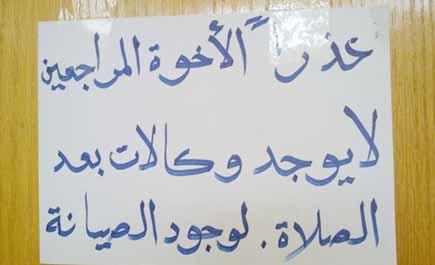 عذراً الأخوة المراجعين
لا يوجد وكالات بعد
الصلاة . لوجود الصيانة